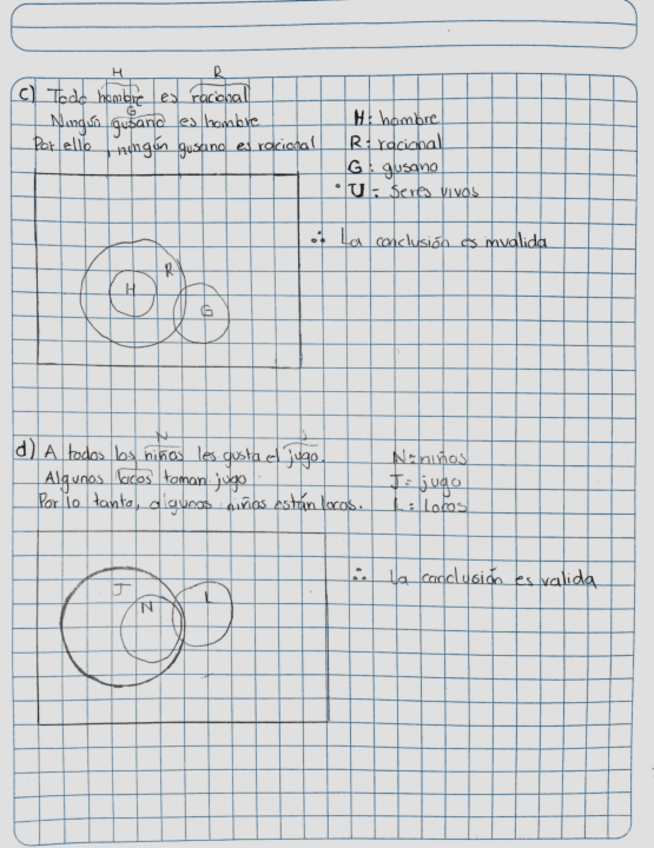 H R
c) Todo hombre es racional
G
Ningún gusano es hombre
Por ello, ningún gusano es racional
H: hombre
R: racional
G: gusano
U = Seres vivos
∴ La conclusión es invalida
R
H
G
N J
d) A todos los niños les gusta el jugo.
Algunos locos toman jugo.
Por lo tanto, algunos niños están locos.
N = niños
J = jugo
L = locos
∴ La conclusión es valida
J
N
L